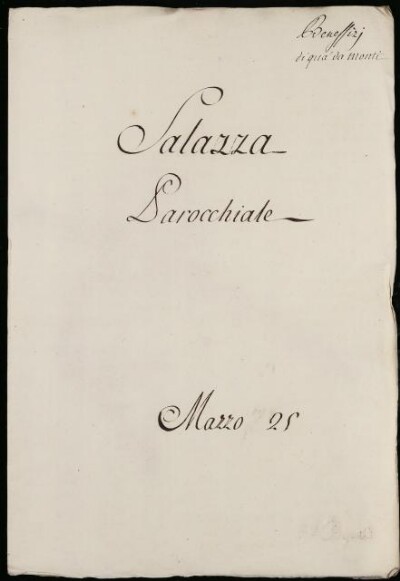 Beneffizj
di quà da monti
Salazza
Parocchiale
Mazzo 25